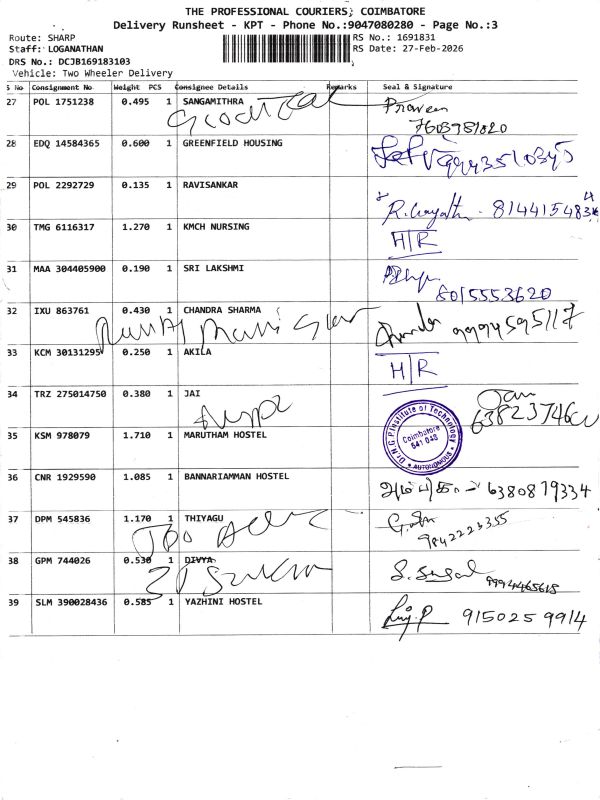 THE PROFESSIONAL COURIERS, COIMBATORE
Delivery Runsheet - KPT - Phone No.:9047080280 - Page No.:3
Route: SHARP RS No.: 1691831
Staff: LOGANATHAN RS Date: 27-Feb-2026
DRS No.: DCJB169183103
Vehicle: Two Wheeler Delivery
S No Consignment No Weight PCS Consignee Details Remarks Seal & Signature
27 POL 1751238 0.495 1 SANGAMITHRA Praveen
28 EDQ 14584365 0.600 1 GREENFIELD HOUSING
29 POL 2292729 0.135 1 RAVISANKAR
30 TMG 6116317 1.270 1 KMCH NURSING H/R
31 MAA 304405900 0.190 1 SRI LAKSHMI
8015553620
32 IXU 863761 0.430 1 CHANDRA SHARMA
9994595117
33 KCM 30131295 0.250 1 AKILA H/R
34 TRZ 275014750 0.380 1 JAI
Dr. N.G.P. Institute of Technology
Coimbatore
641 048
AUTONOMOUS
35 KSM 978079 1.710 1 MARUTHAM HOSTEL
36 CNR 1929590 1.085 1 BANNARIAMMAN HOSTEL 6380879334
37 DPM 545836 1.170 1 THIYAGU
9842223355
38 GPM 744026 0.530 1 DIVYA
9994465618
39 SLM 390028436 0.585 1 YAZHINI HOSTEL 9150259914